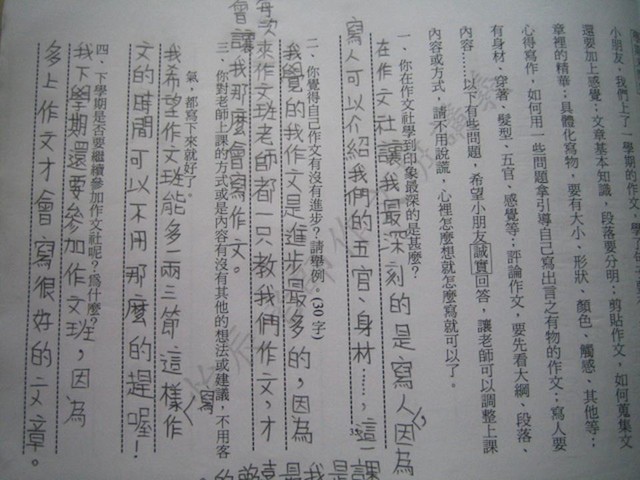 小朋友,我們上了一學期的作文,學
還要加上感覺;文章基本知識,段落要分明;剪貼作文,如何蒐集文
章裡的精華;具體化寫物,要有大小、形狀、顏色、觸感、其他等;
心得寫作,如何用一些問題拿引導自己寫出言之有物的作文;寫人要
有身材、穿著、髮型、五官、感覺等;評論作文,要先看大綱、段落、
內容……以下有些問題,希望小朋友誠實回答,讓老師可以調整上課
內容或方式,請不用說謊,心裡怎麼想就怎麼寫就可以了。
一、你在作文社學到印象最深的是甚麼?
在作文社讓我最深刻的是寫人,因為
寫人可以介紹我們的五官、身材……,這一課
二、你覺得自己作文有沒有進步?請舉例(30字)
我覺的我作文是進步最多的,因為
每次來作文班老師都一只教我們作文,才
會讓我那麼會寫作文。
三、你對老師上課的方式或是內容有沒有其他的想法或建議,不用客
氣,都寫下來就好了。
我希望作文班能多一兩三節這樣寫作
文的時間可以不用那麼的趕喔!
四、下學期是否要繼續參加作文社呢?為什麼?
我下學期還要參加作文班,因為
多上作文才會寫很好的文章。